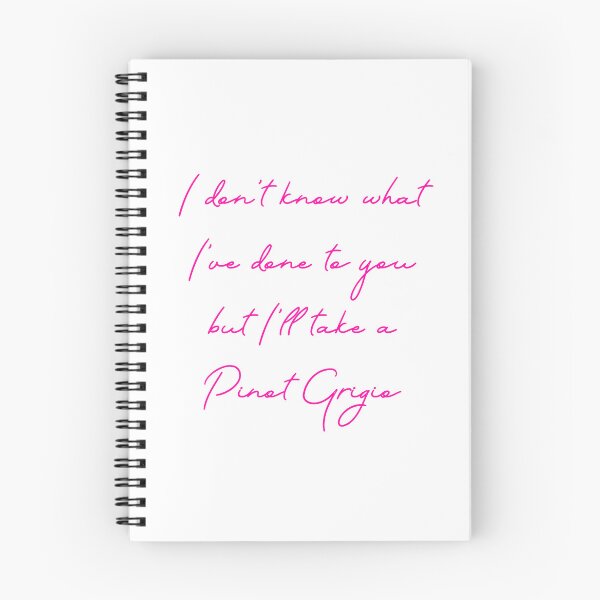 I don't know what
I've done to you
but I'll take a
Pinot Grigio